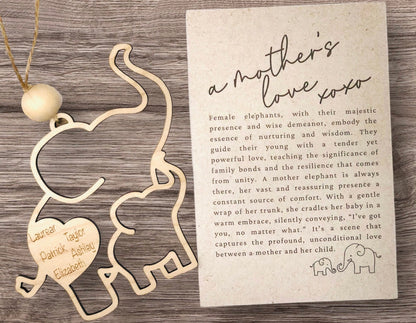 a mother's
love xoxo
Female elephants, with their majestic
presence and wise demeanor, embody the
essence of nurturing and wisdom. They
guide their young with a tender yet
powerful love, teaching the significance of
family bonds and the resilience that comes
from unity. A mother elephant is always
there, her vast and reassuring presence a
constant source of comfort. With a gentle
wrap of her trunk, she cradles her baby in a
warm embrace, silently conveying, "I've got
you, no matter what." It's a scene that
captures the profound, unconditional love
between a mother and her child.
Taylor
Patrick
Ashley
Elizabeth